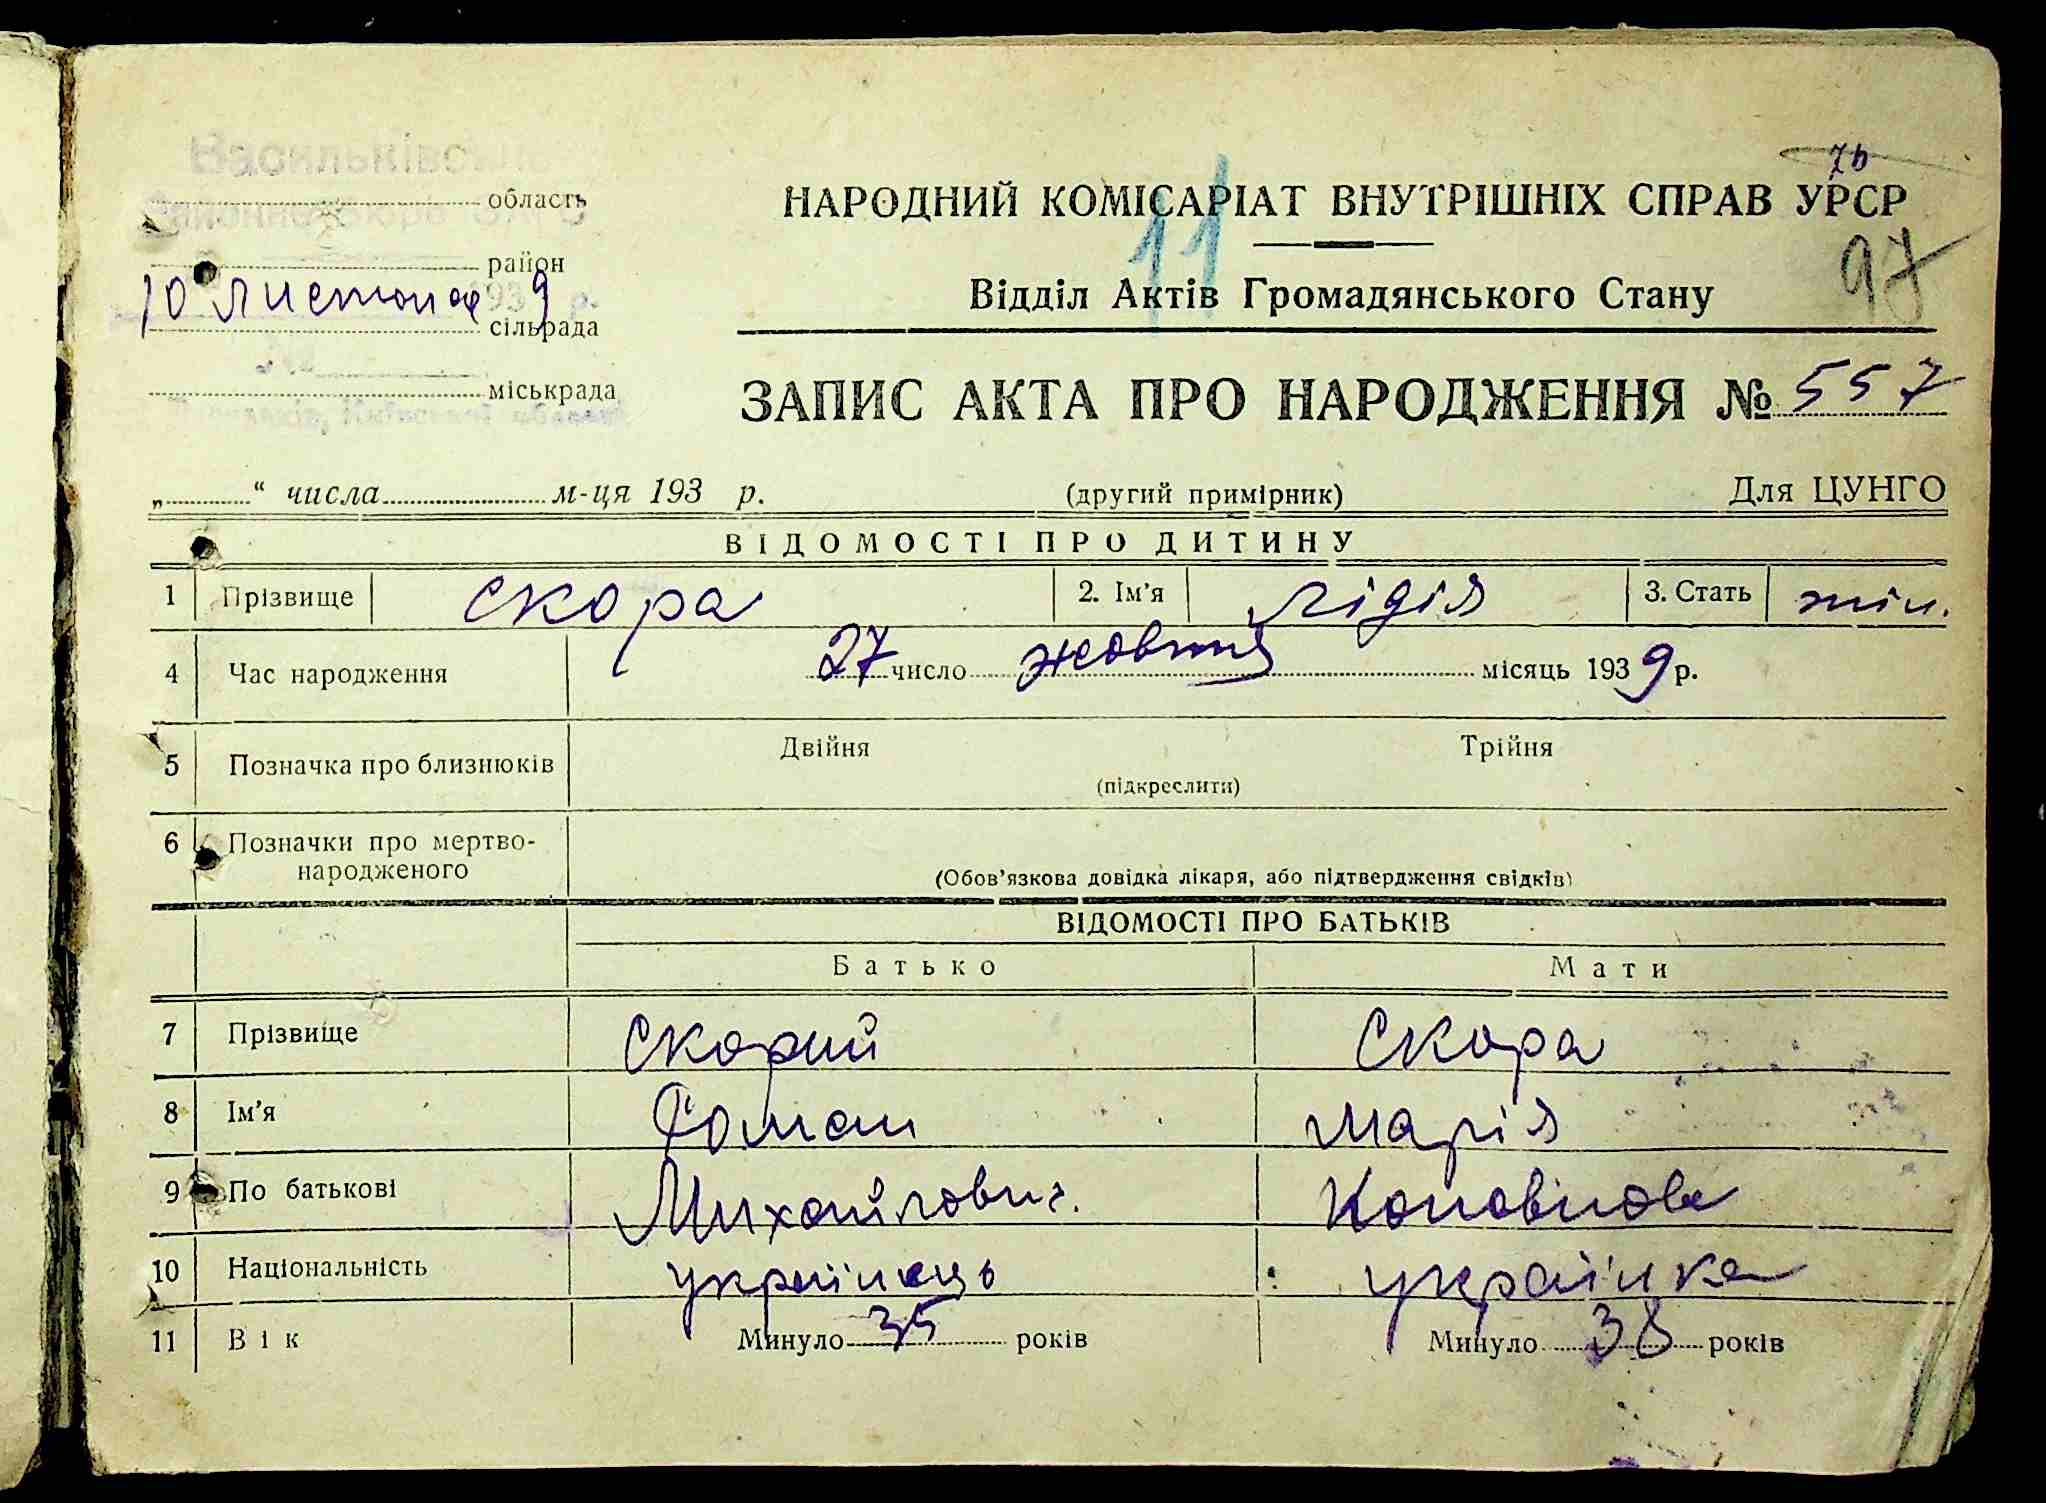 Васильківське
область
Районне Бюро ЗАГС
район
10 листопада 1939 р.
сільрада
№
міськрада
Васильків, Київської області
НАРОДНИЙ КОМІСАРІАТ ВНУТРІШНІХ СПРАВ УРСР
76
11
97
Відділ Актів Громадянського Стану
ЗАПИС АКТА ПРО НАРОДЖЕННЯ № 557
„ “ числа м-ця 193 р. (другий примірник) Для ЦУНГО
ВІДОМОСТІ ПРО ДИТИНУ
1 Прізвище Скора 2. Ім’я Лідія 3. Стать жін.
4 Час народження 27 число жовтня місяць 1939 р.
5 Позначка про близнюків Двійня Трійня
(підкреслити)
6 Позначки про мертво-
народженого
(Обов’язкова довідка лікаря, або підтвердження свідків)
ВІДОМОСТІ ПРО БАТЬКІВ
Батько Мати
7 Прізвище Скорий Скора
8 Ім’я Роман Марія
9 По батькові Михайлович.
10 Національність українець українка
11 Вік Минуло 35 років Минуло 38 років